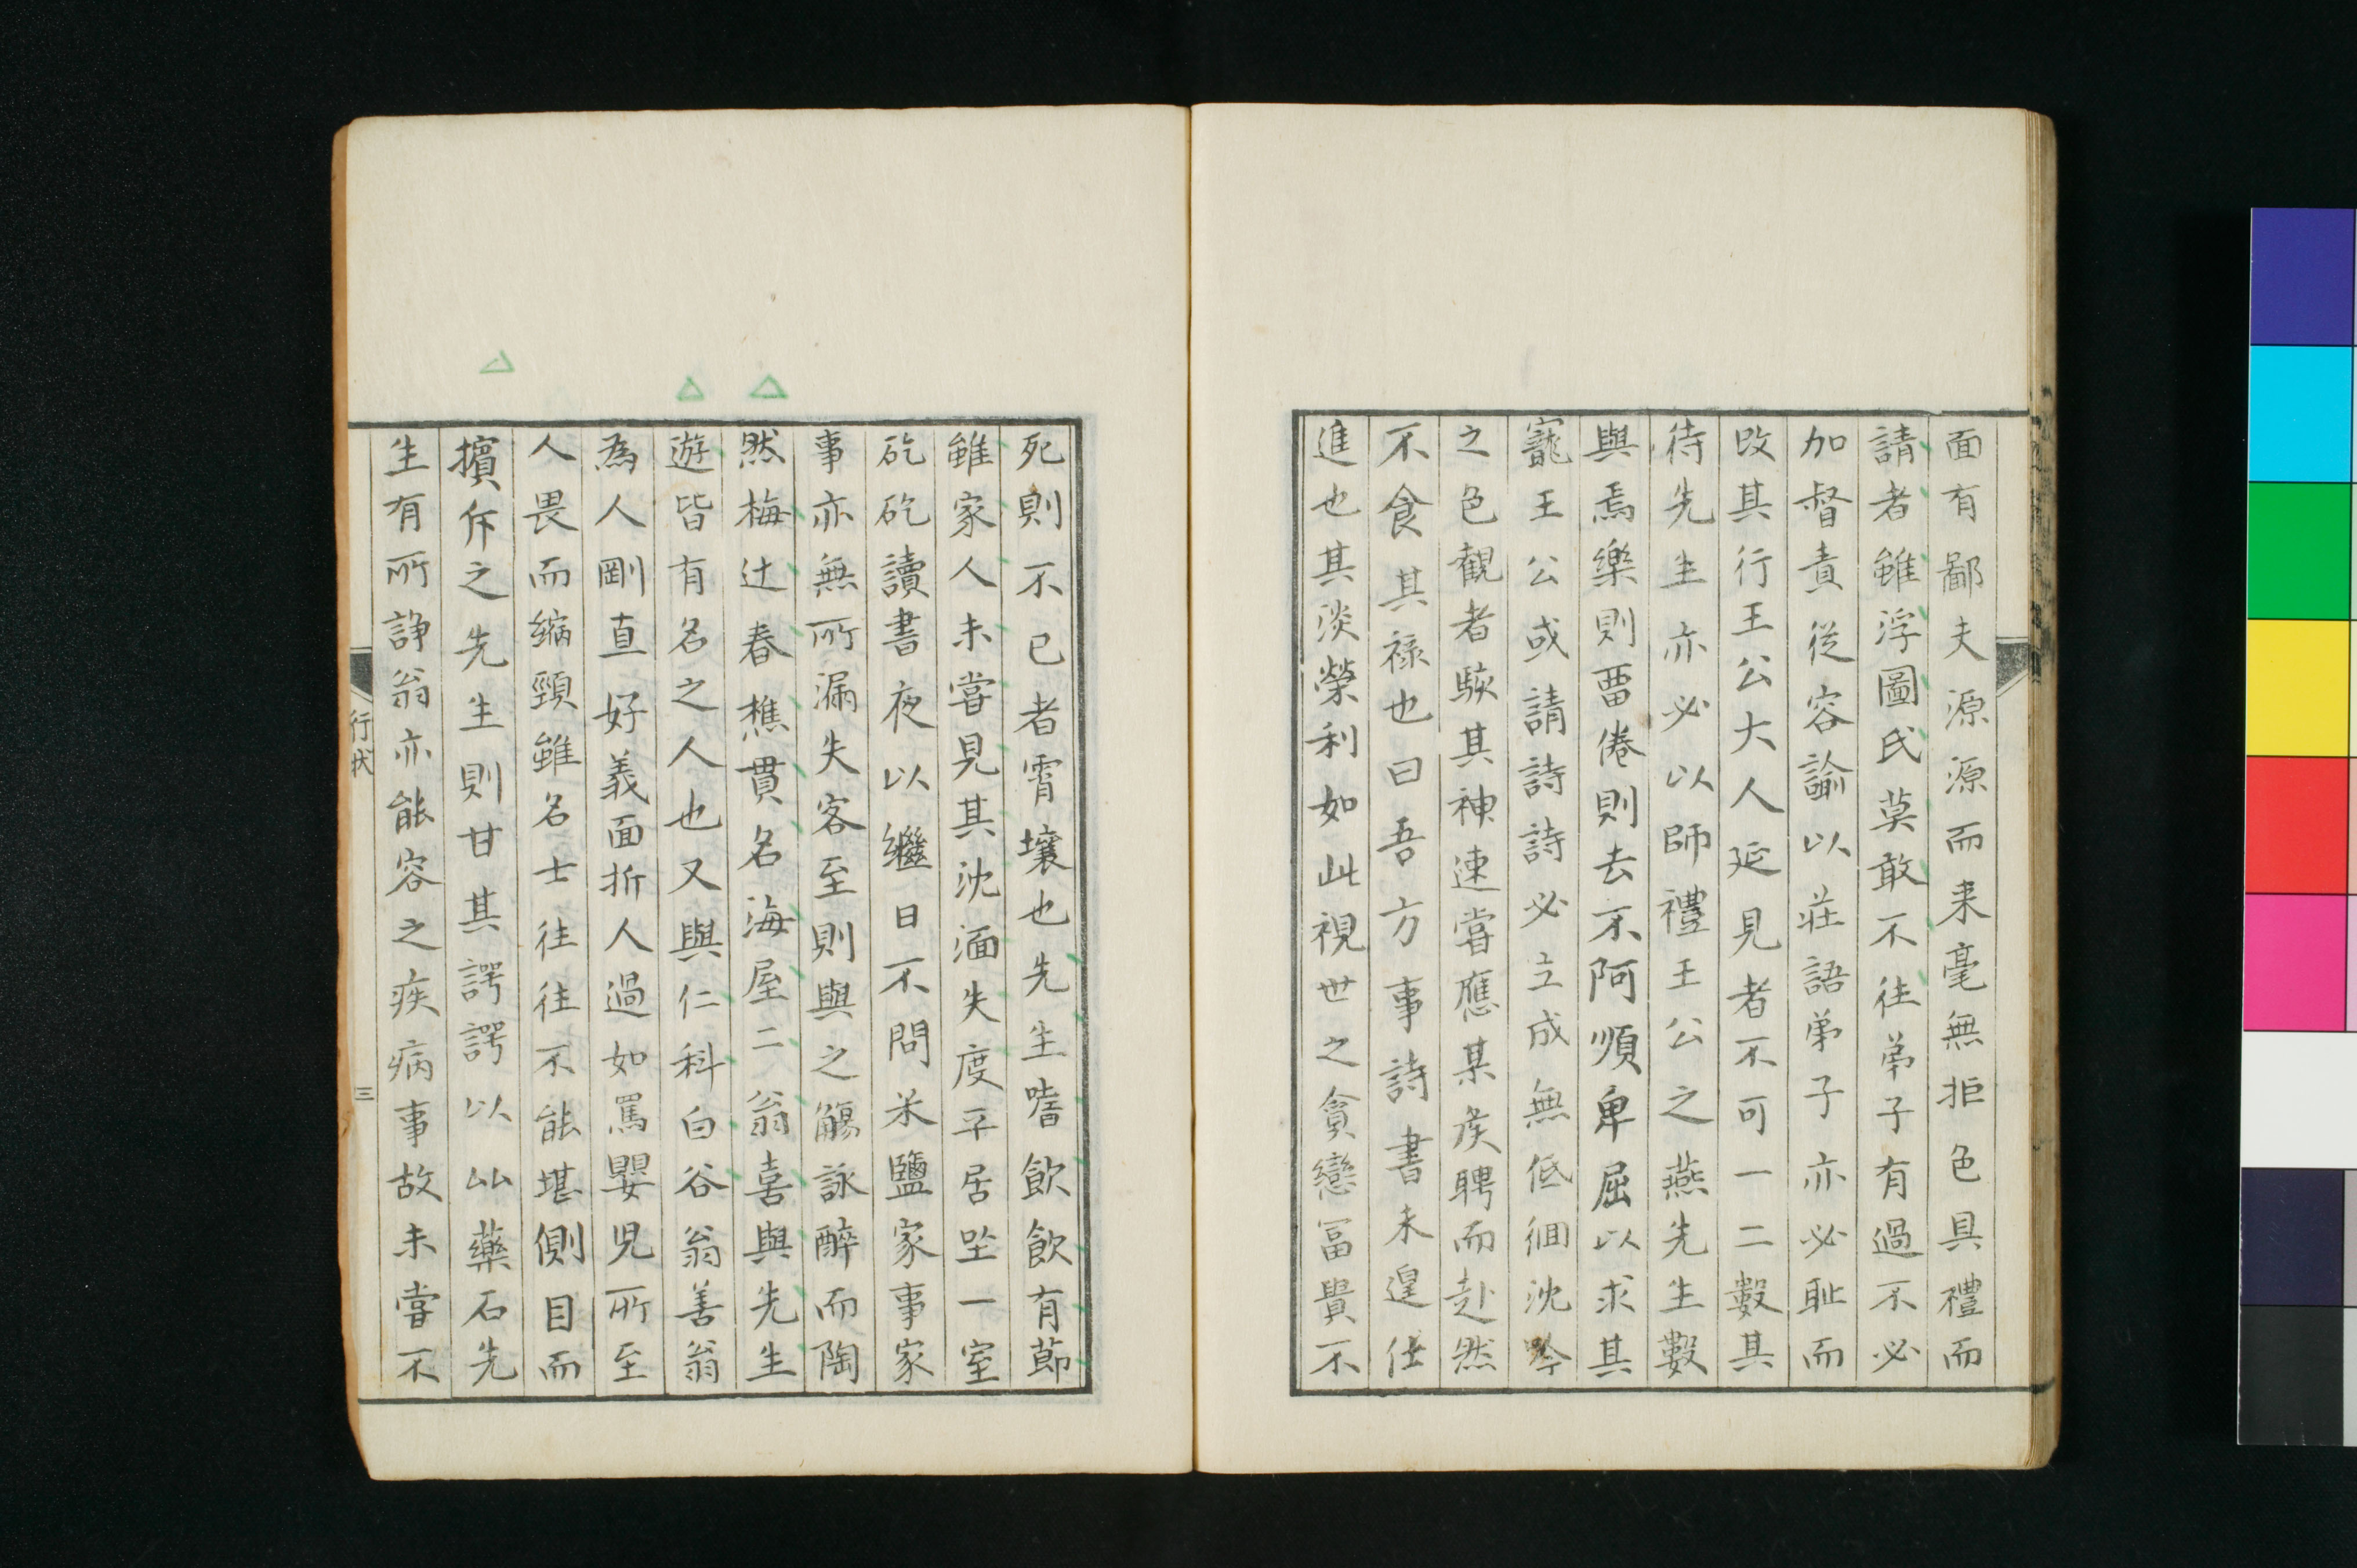 面有鄙夫源源而来毫無拒色具禮而
請者雖浮圖氏莫敢不往弟子有過不必
加督責從容諭以莊語弟子亦必恥而
改其行王公大人延見者不可一二數其
待先生亦必以師禮王公之燕先生數
與焉樂則畱倦則去不阿順卑屈以求其
寵王公或請詩詩必立成無低徊沈吟
之色觀者駭其神速嘗應某矦聘而赴然
不食其祿也曰吾方事詩書未遑仕
進也其淡榮利如此視世之貪戀冨貴不
死則不已者霄壤也先生嗜飲飲有節
雖家人未嘗見其沈湎失度平居坐一室
矻矻讀書夜以繼日不問米鹽家事家
事亦無所漏失客至則與之觴詠醉而陶
然梅辻春樵貫名海屋二翁喜與先生
遊皆有名之人也又與仁科白谷翁善翁
為人剛直好義面折人過如罵嬰児所至
人畏而縮頸雖名士往往不能堪側目而
擯斥之先生則甘其諤諤以此藥石先
生有所諍翁亦能容之疾病事故未嘗不
行状
三